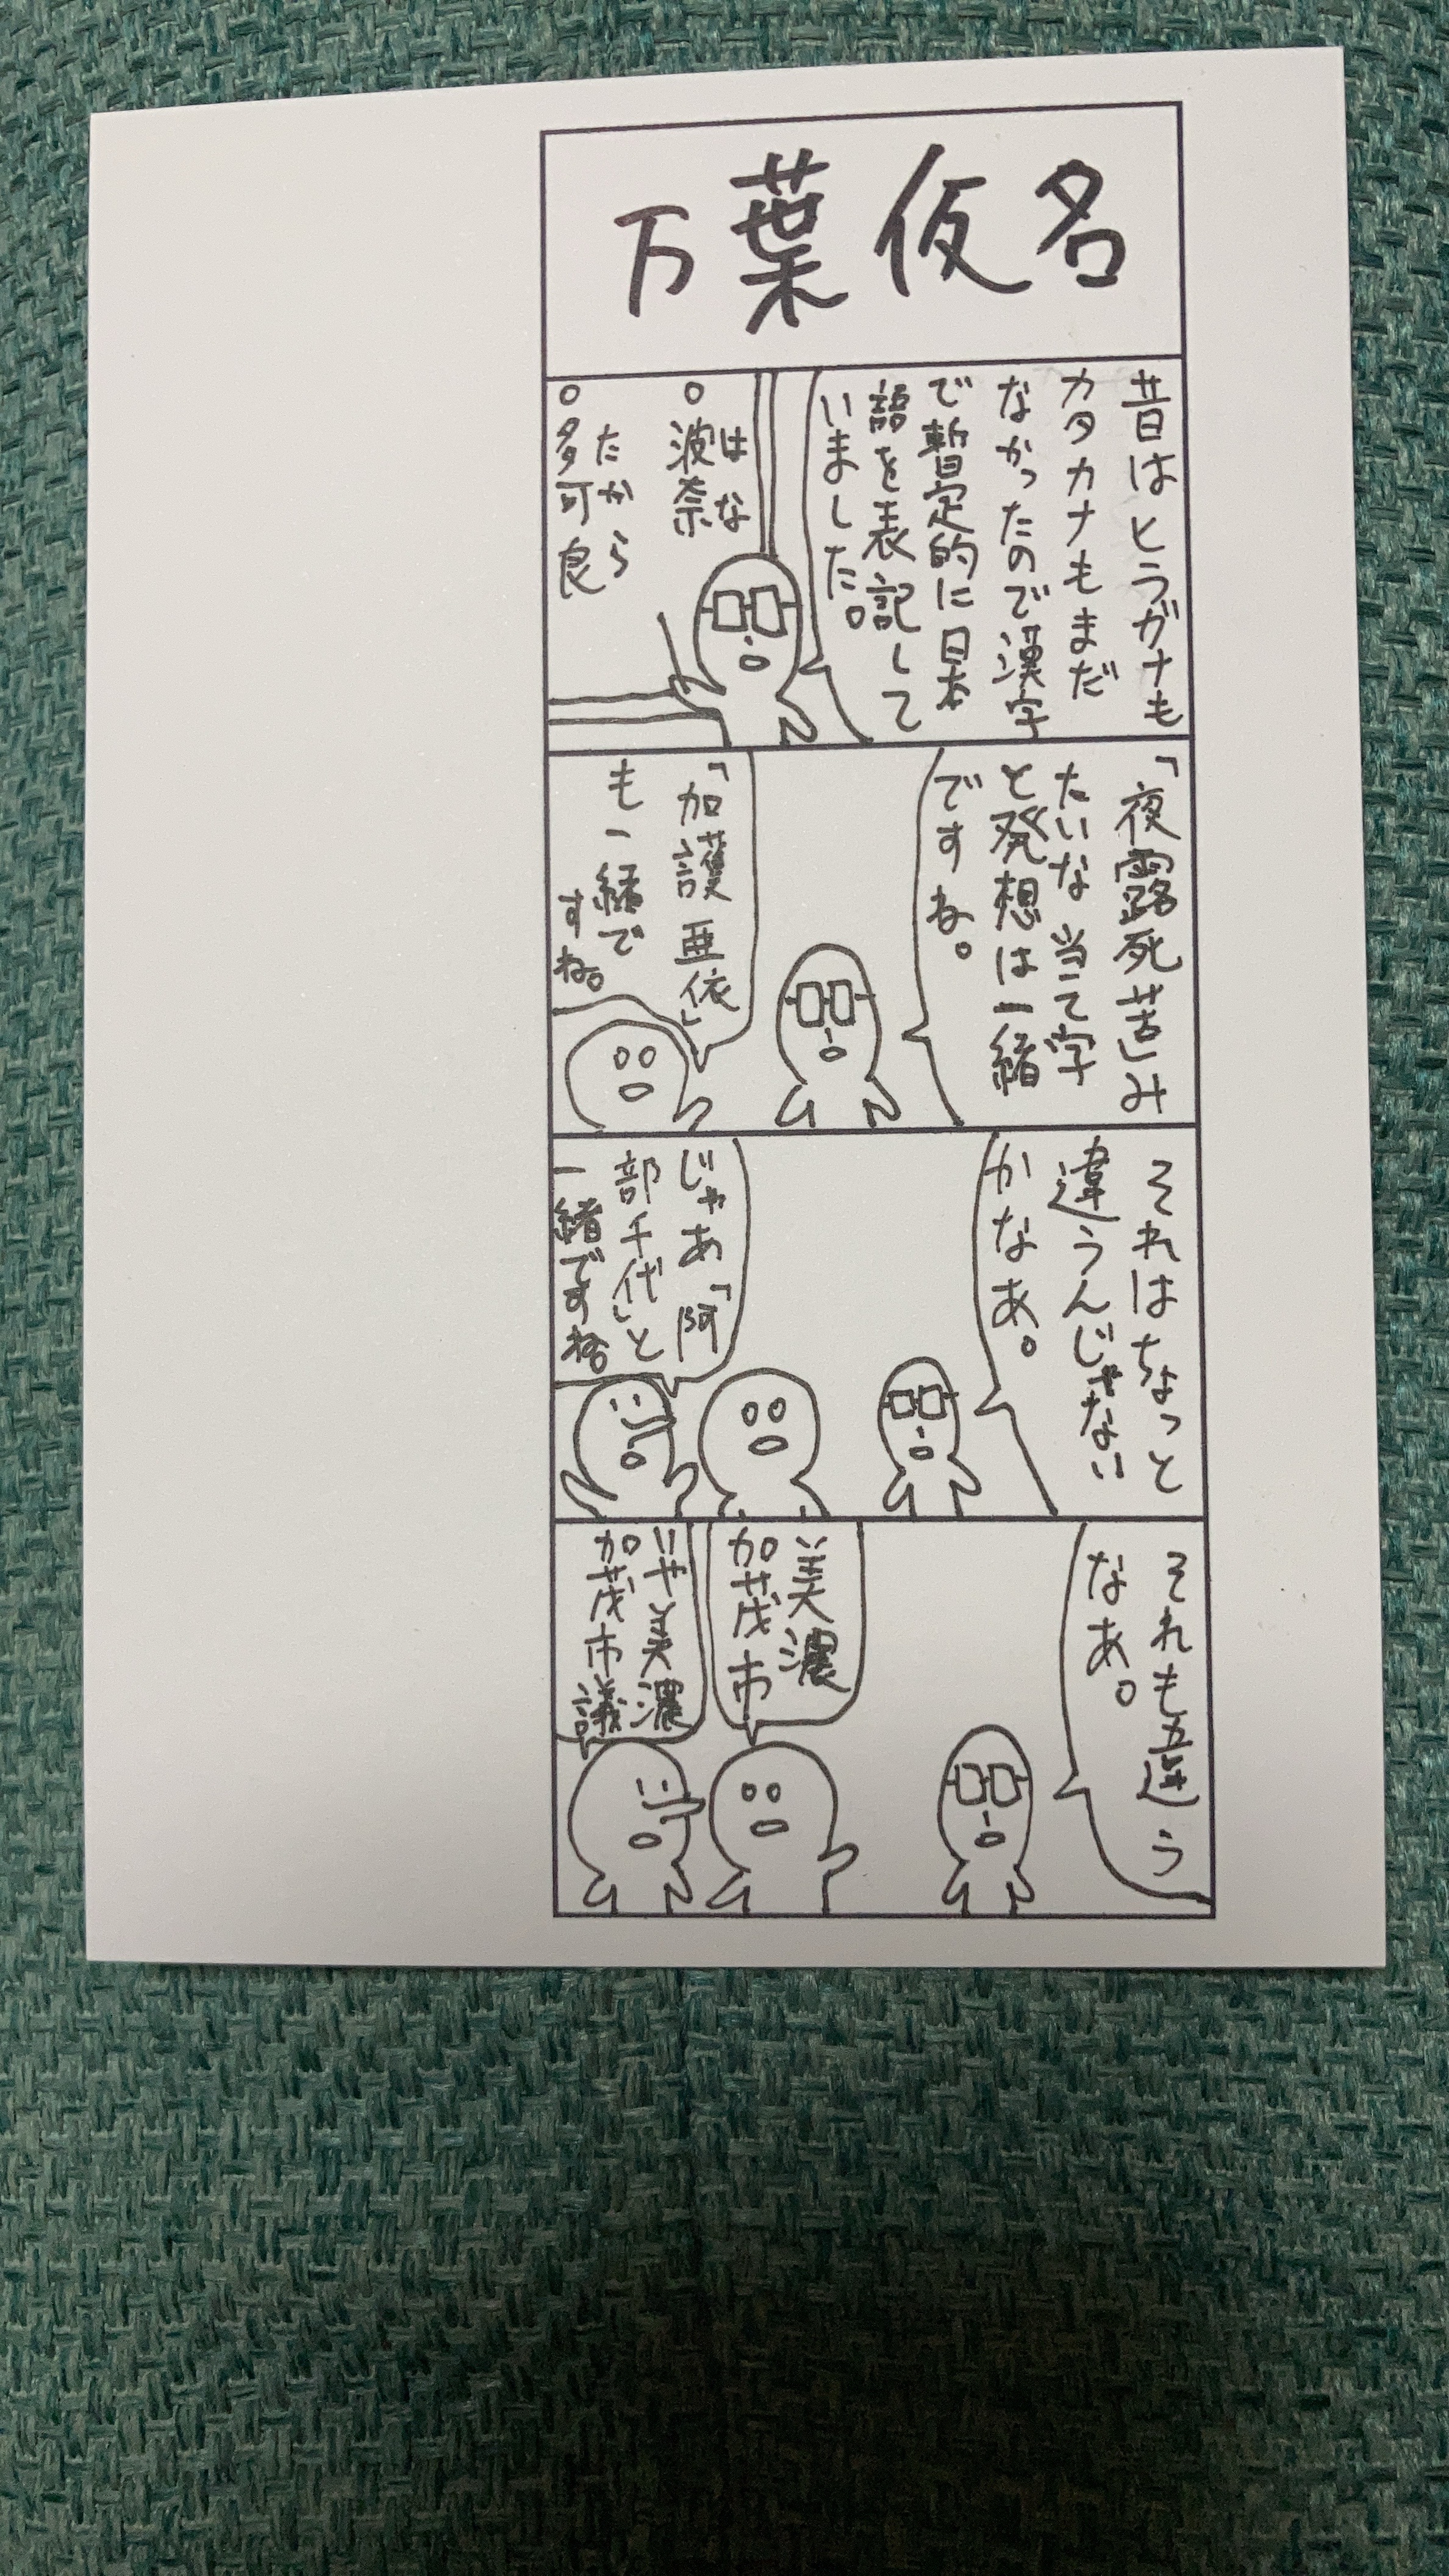 万葉仮名
昔はヒラガナも
カタカナもまだ
なかったので漢字
で暫定的に日本
語を表記して
いました。
はな
○波奈
たから
○多可良
「夜露死苦」み
たいな当て字
と発想は一緒
ですね。
「加護亜依」
も一緒で
すね。
それはちょっと
違うんじゃない
かなあ。
じゃあ「阿
部千代」と
一緒ですね。
それも違う
なあ。
美濃
加茂市
いや美濃
加茂市議